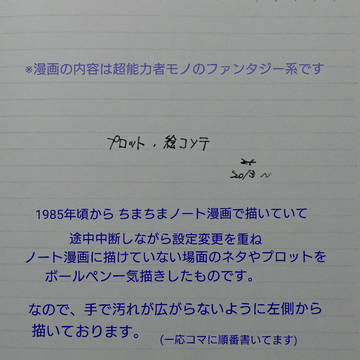 ※漫画の内容は超能力者モノのファンタジー系です
プロット・絵コンテ
2013〜
1985年頃から ちまちまノート漫画で描いていて
途中中断しながら設定変更を重ね
ノート漫画に描けていない場面のネタやプロットを
ボールペン一気描きしたものです。
なので、手で汚れが広がらないように左側から
描いております。
(一応コマに順番書いてます)